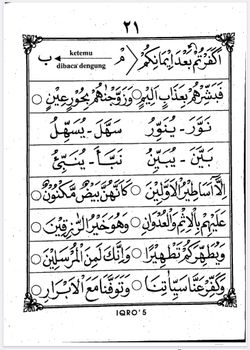 ٢١
أَكَفَرْتُمْ بَعْدَ إِيْمَانِكُمْ
مْ ketemu ب
dibaca dengung
فَبَشِّرْهُمْ بِعَذَابٍ أَلِيْمٍ ○ وَزَوَّجْنَاهُمْ بِحُوْرٍعِيْنٍ ○
نَوَّرَ - يُنَوِّرُ سَهَّلَ - يُسَهِّلُ
بَيَّنَ - يُبَيِّنُ نَبَّأَ - يُنَبِّئُ
إِلَّا أَسَاطِيْرُ الْأَوَّلِيْنَ ○ كَأَنَّهُنَّ بَيْضٌ مَّكْنُوْنٌ ○
عَلَيْهِمْ بِالْإِثْمِ وَالْعُدْوَانِ ○ وَهُوَ خَيْرُ الرّٰزِقِيْنَ ○
وَيُطَهِّرَكُمْ تَطْهِيْرًا ○ وَإِنَّكَ لَمِنَ الْمُرْسَلِيْنَ ○
وَكَفِّرْ عَنَّا سَيِّاٰتِنَا ○ وَتَوَفَّنَا مَعَ الْأَبْرَارِ ○
IQRO'5